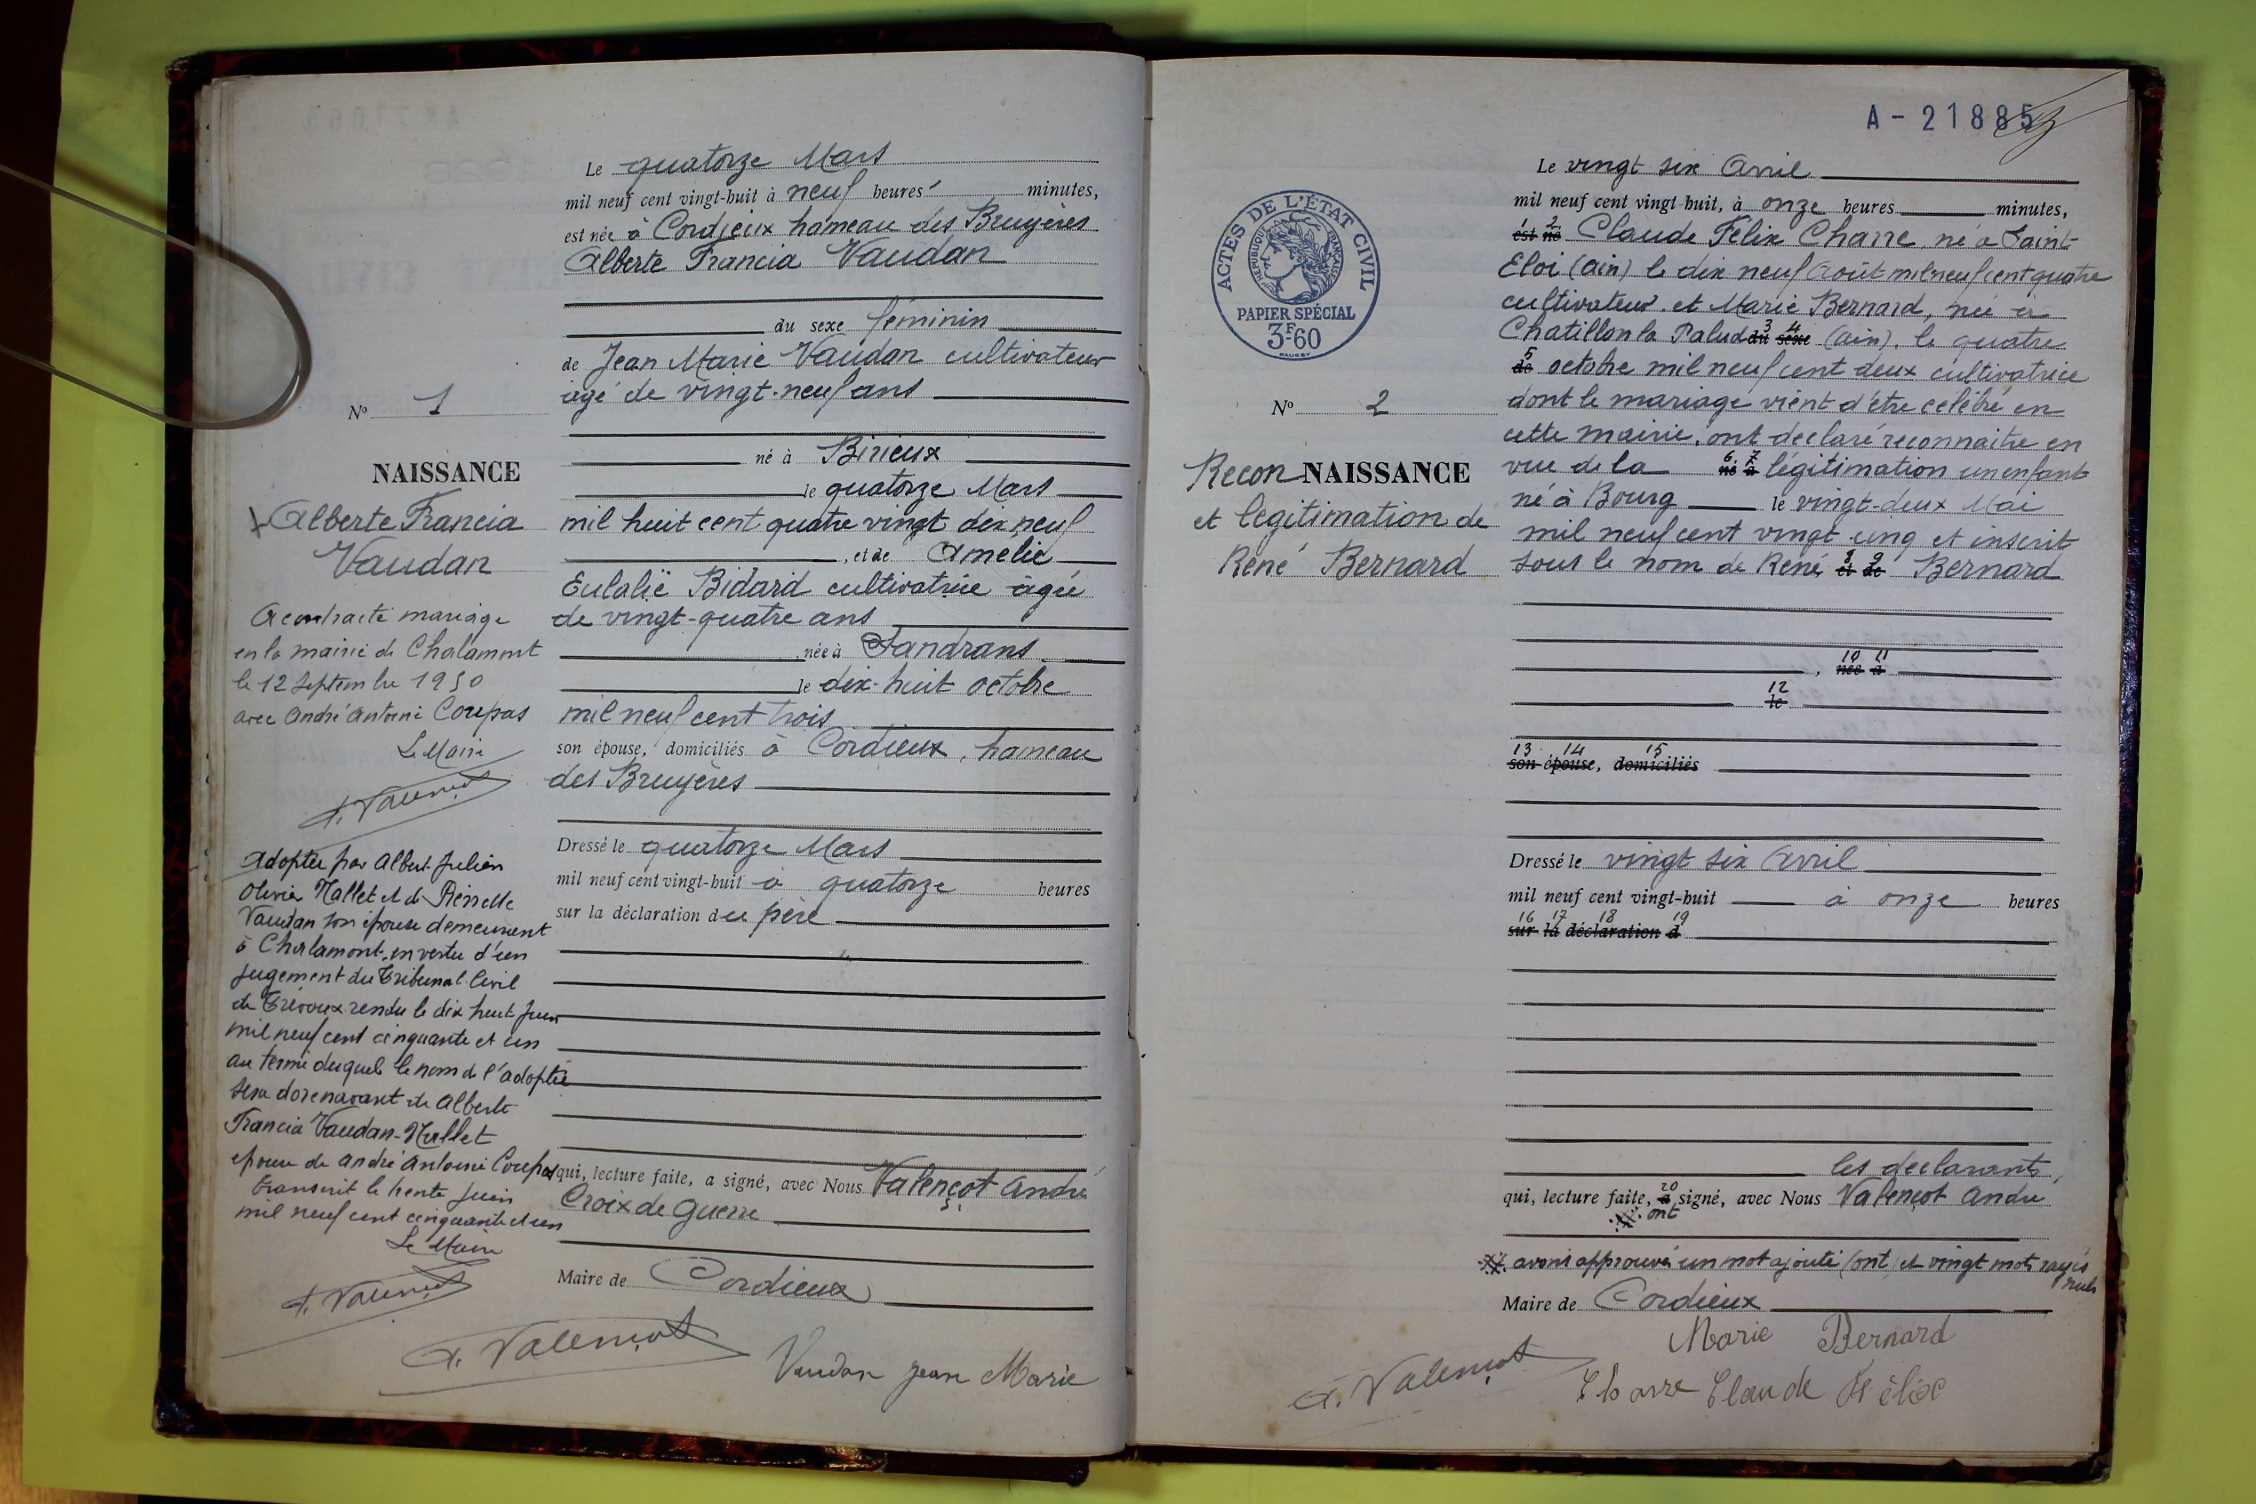 Le quatorze Mars
mil neuf cent vingt-huit à neuf heures minutes,
est née à Cordieux hameau des Bruyères
Alberte Francia Vaudan
du sexe féminin
de Jean Marie Vaudan cultivateur
âgé de vingt-neuf ans
né à Birieux
le quatorze Mars
mil huit cent quatre vingt dix neuf
, et de Amelie
Eulalie Bidard cultivatrice âgée
de vingt-quatre ans
née à Sandrans
le dix-huit octobre
mil neuf cent trois
son épouse, domiciliés à Cordieux, hameau
des Bruyères
Dressé le quatorze Mars
mil neuf cent vingt-huit à quatorze heures
sur la déclaration du père
qui, lecture faite, a signé, avec Nous Valençot André
Croix de guerre
Maire de Cordieux
A. Valençot
Vaudan Jean Marie
No 1
NAISSANCE
Alberte Francia
Vaudan
A contracté mariage
en la mairie de Chalamont
le 12 Septembre 1950
avec André Antoine Coupas
Le Maire
A. Valençot
Adoptée par Albert Julien
Olivier Nallet et de
Vaudan son épouse demeurant
à Chalamont, en vertu d'un
jugement du Tribunal Civil
de Trévoux rendu le dix huit Juin
mil neuf cent cinquante et un
au terme duquel le nom de l'adoptée
sera dorenavant de Alberte
Francia Vaudan-Nallet
épouse de André Antoine Coupas
transcrit le trente Juin
mil neuf cent cinquante et un
Le Maire
A. Valençot
A-21885
ACTES DE L'ÉTAT CIVIL
RÉPUBLIQUE FRANÇAISE
PAPIER SPÉCIAL
3F60
No 2
Recon NAISSANCE
et legitimation de
René Bernard
Le vingt six Avril
mil neuf cent vingt-huit, à onze heures minutes,
1 2
est né Claude Félix Charre, né à Saint-
Eloi (Ain) le dix neuf Août mil neuf cent quatre
cultivateur. et Marie Bernard, née à
3 4
Chatillon la Palud du sexe (Ain). le quatre
5
de octobre mil neuf cent deux cultivatrice
dont le mariage vient d'être célébré en
cette mairie, ont déclaré reconnaitre en
6 7
vue de la né à légitimation un enfant
né à Bourg le vingt-deux Mai
mil neuf cent vingt cinq et inscrit
8 9
sous le nom de René, et de Bernard
10 11
, née à
12
le
13 14 15
son épouse, domiciliés
Dressé le vingt six Avril
mil neuf cent vingt-huit à onze heures
16 17 18 19
sur la déclaration d
les déclarants,
20
qui, lecture faite, a signé, avec Nous Valençot André
ont
avons approuvé un mot ajouté (ont) et vingt mots rayés
nuls
Maire de Cordieux
Marie Bernard
A. Valençot
Charre Claude Félix